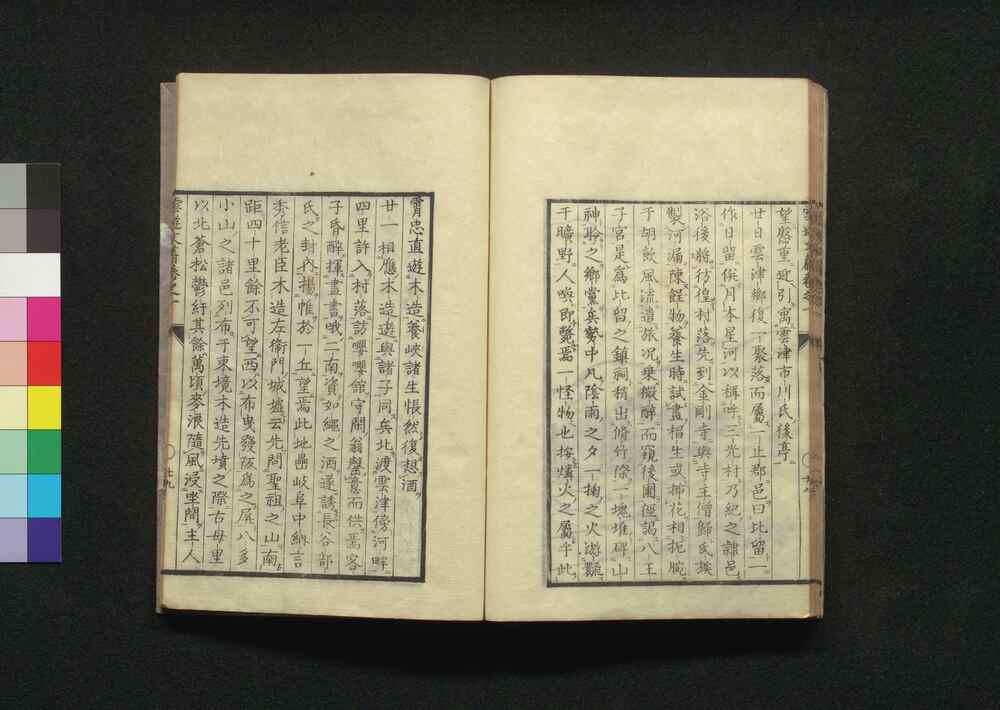 望愍重迎引寓雲津市川氏後亭
廿日雲津鄉復一聚落而屬一止郡邑曰比留一
作日留俟月本星河以稱呼三光村乃紀之雜邑
浴後將彷徨村落先到金剛寺與寺主僧歸氏挨
製河漏陳飪物養生時試畫椙生或挿花相扼腕
于胡飲風流遣旅况乗微醉而窺後圃俓謁八王
子宮是爲比留之鎮祠稍出脩竹際一塊堆碑山
神聆之鄉黨兵勢中凡陰雨之夕一掬之火游翫
干曠野人喚即斃焉一怪物也按燐火之屬乎此
霄忠直遊木造養峽諸生悵然復想酒
廿一相應木造遊與諸子同兵北渡雲津傍河畔
四里許入村落訪嚶嚶館守開翁鑿意而供焉客
子昏醉揮畫畫哦二南資如繩之酒遂誘長谷部
氏之封内揚帷於一丘望焉此地疊岐阜中納言
秀信老臣木造左衛門城墟云先問聖祖之山南
距四十里餘不可望西以布曳發阪爲之屏八多
小山之諸邑列布于東境木造先墳之際右母里
以北蒼松鬱紆其餘萬頃麥浪隨風浸坐間主人
廿九